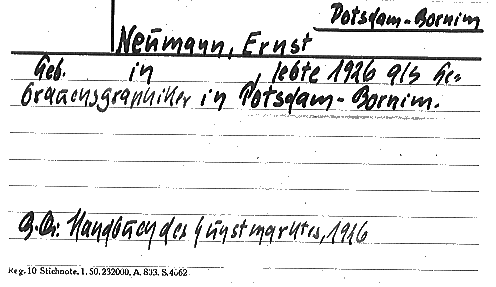 Potsdam-Bornim
Neumann, Ernst
Geb. in , lebte 1926 als Ge-
brauchsgraphiker in Potsdam-Bornim.
Handbuch des Kunstmarktes, 1926
Reg. 10 Stichnote. 1. 50. 232000. A. 833. S. 4062